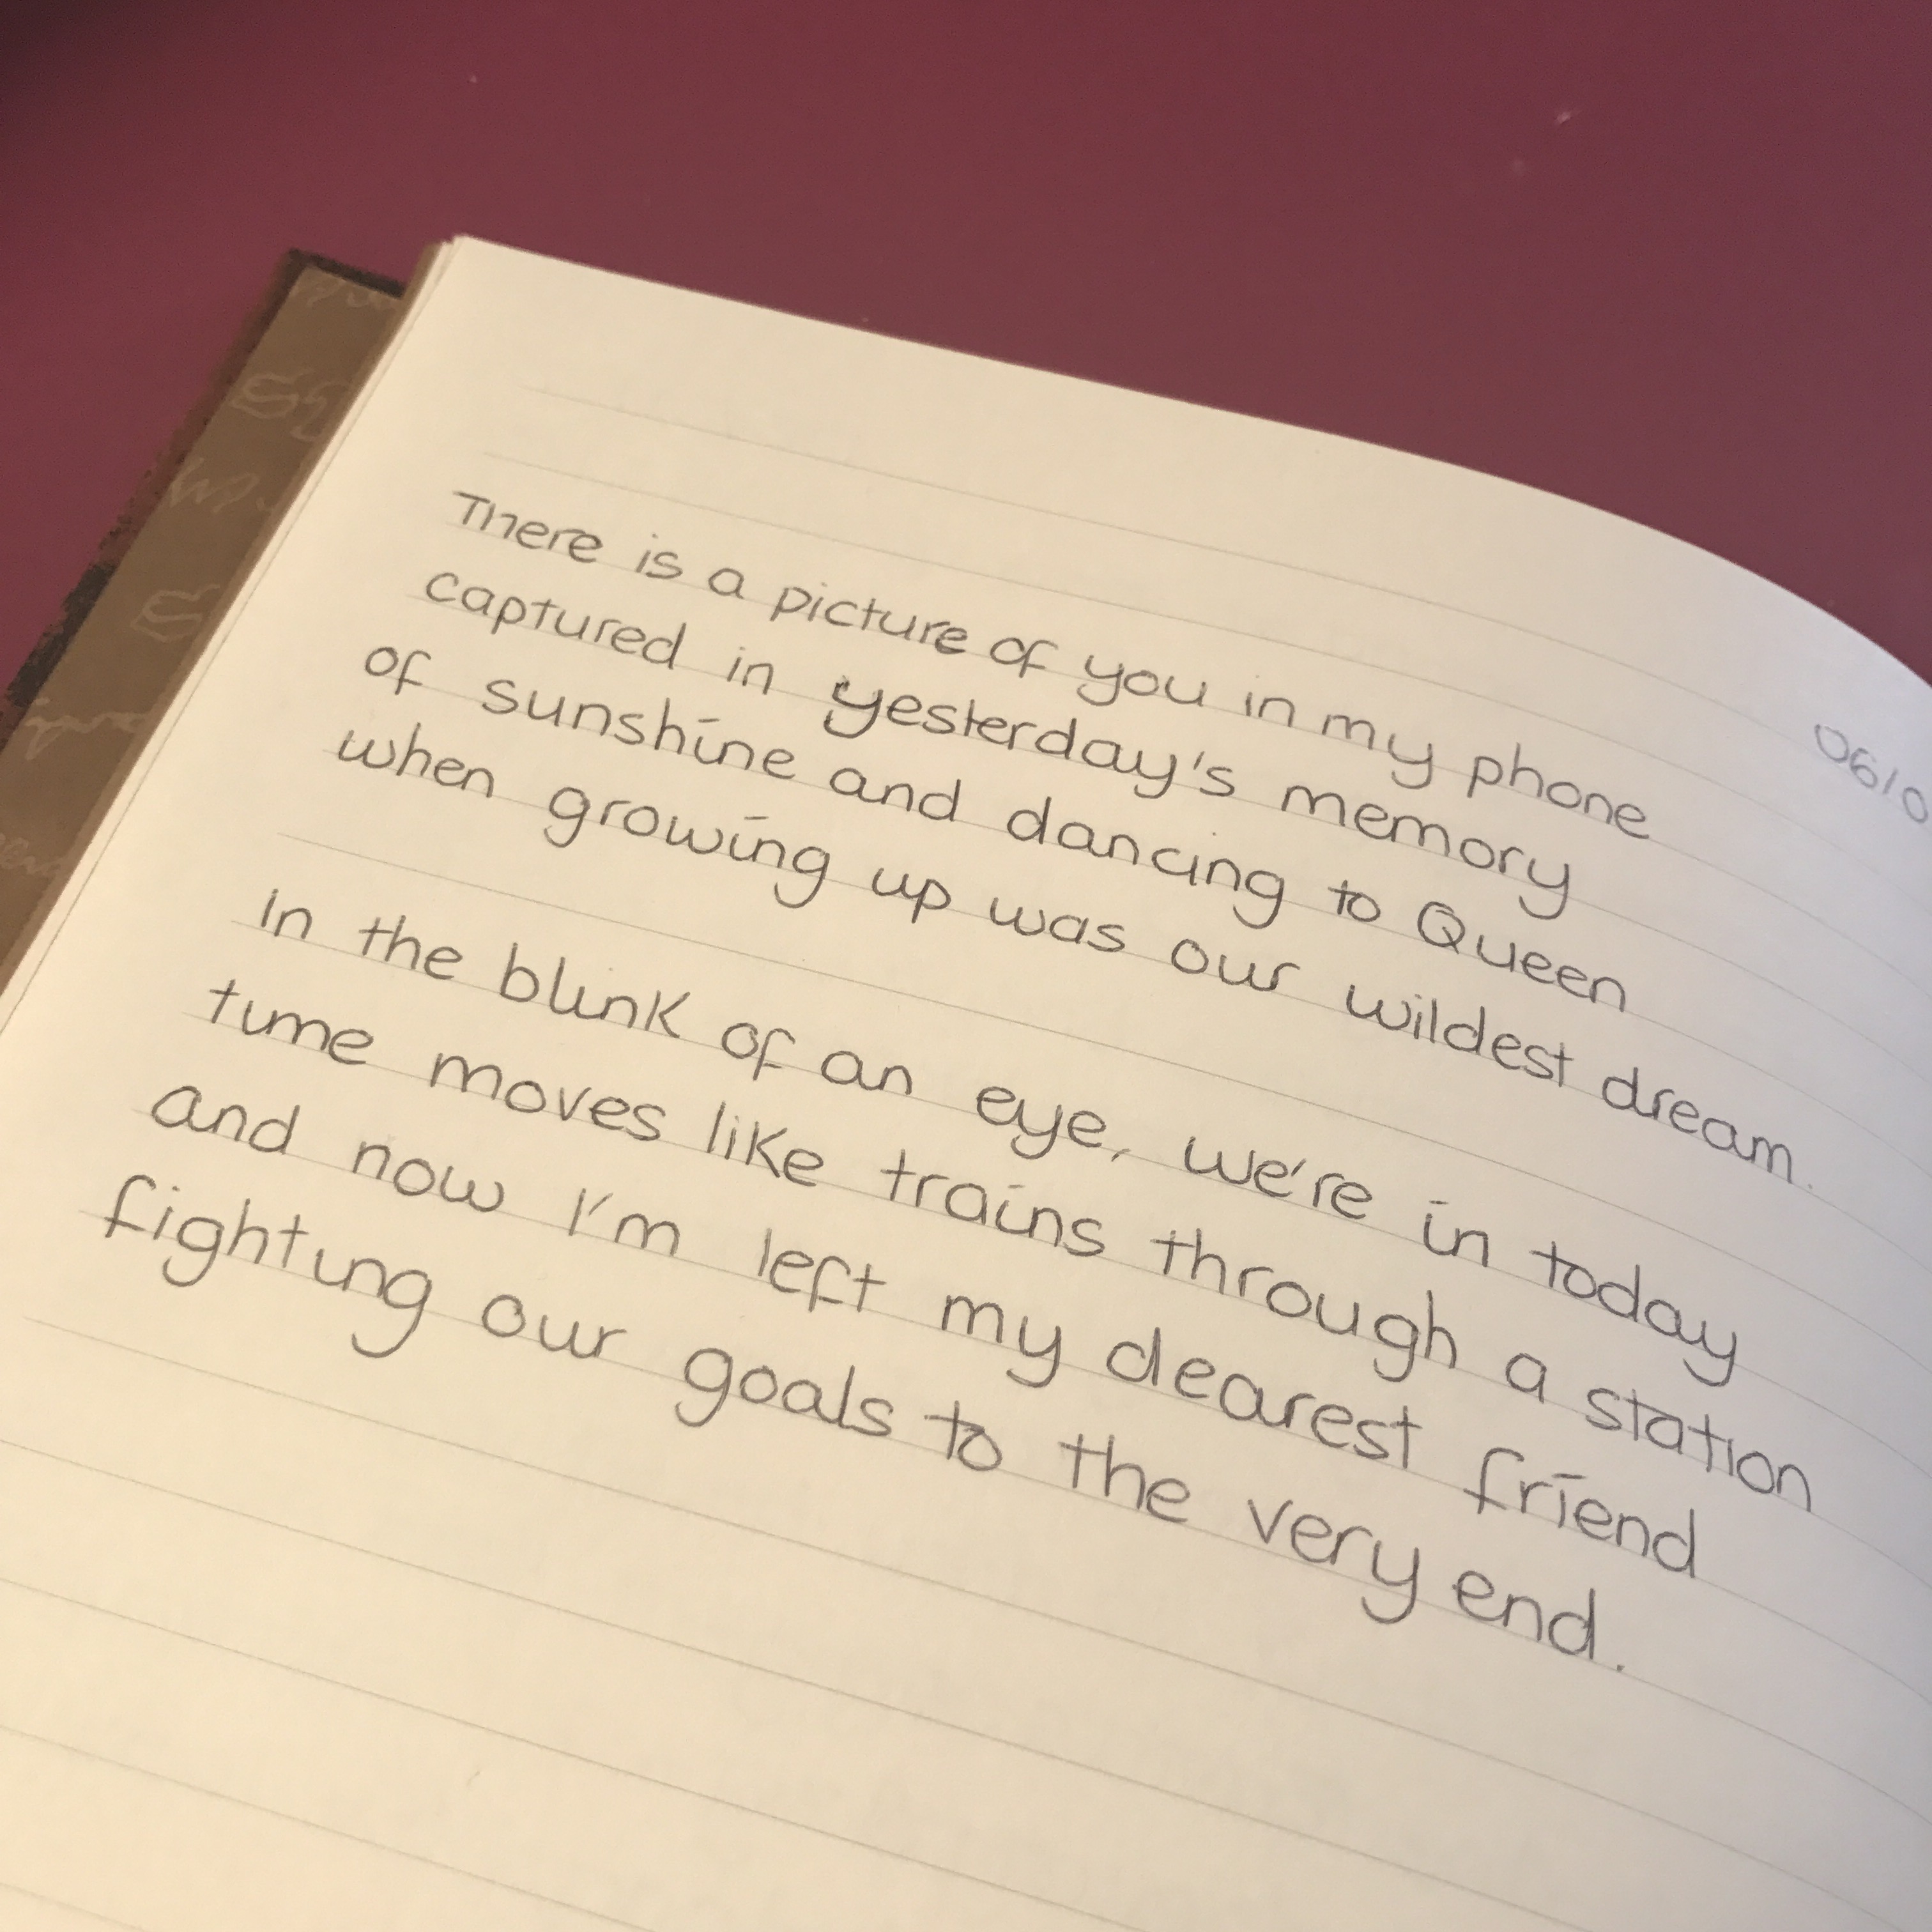 06/0
There is a picture of you in my phone
captured in yesterday's memory
of sunshine and dancing to Queen
when growing up was our wildest dream.
in the blink of an eye, we're in today
time moves like trains through a station
and now I'm left my dearest friend
fighting our goals to the very end.